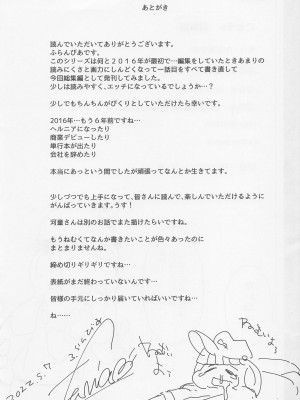 あとがき
読んでいただいてありがとうございます。
ふらんぴあです。
このシリーズは何と2016年が最初で…編集をしていたときあまりの
読みにくさと画力にしんどくなって一話目をすべて書き直して
今回総集編として発刊してみました。
少しは読みやすく、エッチになっているでしょうか…？
少しでもちんちんがぴくりとしていただけたら幸いです。
2016年…もう６年前ですね…
ヘルニアになったり
商業デビューしたり
単行本が出たり
会社を辞めたり
本当にあっという間でしたが頑張ってなんとか生きてます。
少しづつでも上手になって、皆さんに読んで、楽しんでいただけるように
がんばっていきます。うす！
河童さんは別のお話でまた描けたらいいですね。
もうねむくてなんか書きたいことが色々あったのに
まとまりませんね。
締め切りギリギリですね…
表紙がまだ終わっていないんです…
皆様の手元にしっかり届いていればいいですね…
ね……
2022.5.7
ふらんぴあ
ねむいよぉ